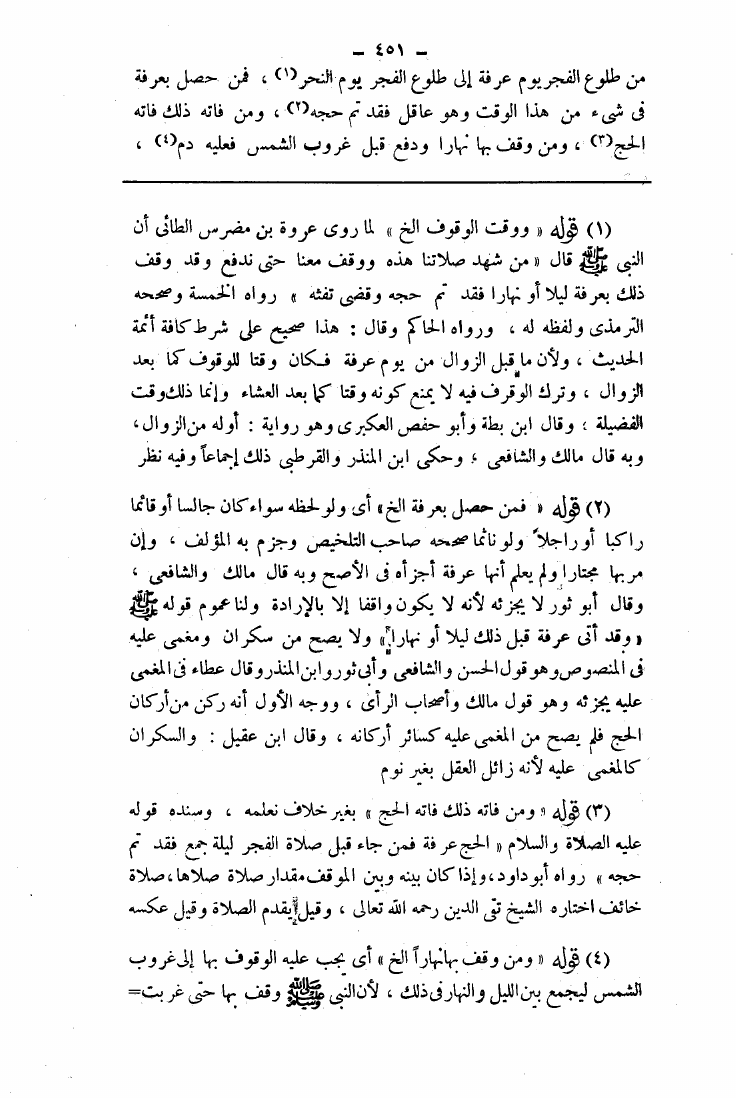 — ٤٥١ —
من طلوع الفجر يوم عرفة إلى طلوع الفجر يوم النحر(١) ، فمن حصل بعرفة
فى شىء من هذا الوقت وهو عاقل فقد تم حجه(٢) ، ومن فاته ذلك فاته
الحج(٣) ، ومن وقف بها نهارا ودفع قبل غروب الشمس فعليه دم(٤) ،
(١) قوله « ووقت الوقوف الخ » لما روى عروة بن مضرس الطائى أن
النبى ﷺ قال « من شهد صلاتنا هذه ووقف معنا حتى ندفع وقد وقف
ذلك بعرفة ليلا أو نهارا فقد تم حجه وقضى تفثه » رواه الخمسة وصححه
الترمذى ولفظه له ، ورواه الحاكم وقال : هذا صحيح على شرط كافة أئمة
الحديث ، ولأن ما قبل الزوال من يوم عرفة فكان وقتا للوقوف كما بعد
الزوال ، وترك الوقرف فيه لا يمنع كونه وقتا كما بعد العشاء وإنما ذلك وقت
الفضيلة ؛ وقال ابن بطة وأبو حفص العكبرى وهو رواية : أوله من الزوال ،
وبه قال مالك والشافعى ، وحكى ابن المنذر والقرطبى ذلك إجماعاً وفيه نظر
(٢) قوله « فمن حصل بعرفة الخ » أى ولو لحظه سواء كان جالسا أو قائما
راكبا أو راجلاً ولو نائما صححه صاحب التلخيص وجزم به المؤلف ، وإن
مر بها مجتارا ولم يعلم أنها عرفة أجزأه فى الأصح وبه قال مالك والشافعى ،
وقال أبو ثور لا يجزئه لأنه لا يكون واقفا إلا بالإرادة ولنا عموم قوله ﷺ
« وقد أتى عرفة قبل ذلك ليلا أو نهارا » ولا يصح من سكران ومغمى عليه
فى المنصوص وهو قول الحسن والشافعى وأبى ثور وابن المنذر وقال عطاء فى المغمى
عليه يجزئه وهو قول مالك وأصحاب الرأى ، ووجه الأول أنه ركن من أركان
الحج فلم يصح من المغمى عليه كسائر أركانه ، وقال ابن عقيل : والسكران
كالمغمى عليه لأنه زائل العقل بغير نوم
(٣) قوله « ومن فاته ذلك فاته الحج » بغير خلاف نعلمه ، وسنده قوله
عليه الصلاة والسلام « الحج عرفة فمن جاء قبل صلاة الفجر ليلة جمع فقد تم
حجه » رواه أبو داود ، وإذا كان بينه وبين الموقف مقدار صلاة صلاها ، صلاة
خائف اختاره الشيخ تقى الدين رحمه الله تعالى ، وقيل يقدم الصلاة وقيل عكسه
(٤) قوله « ومن وقف بها نهاراً الخ » أى يجب عليه الوقوف بها إلى غروب
الشمس ليجمع بين الليل والنهار فى ذلك ، لأن النبى ﷺ وقف بها حتى غربت=